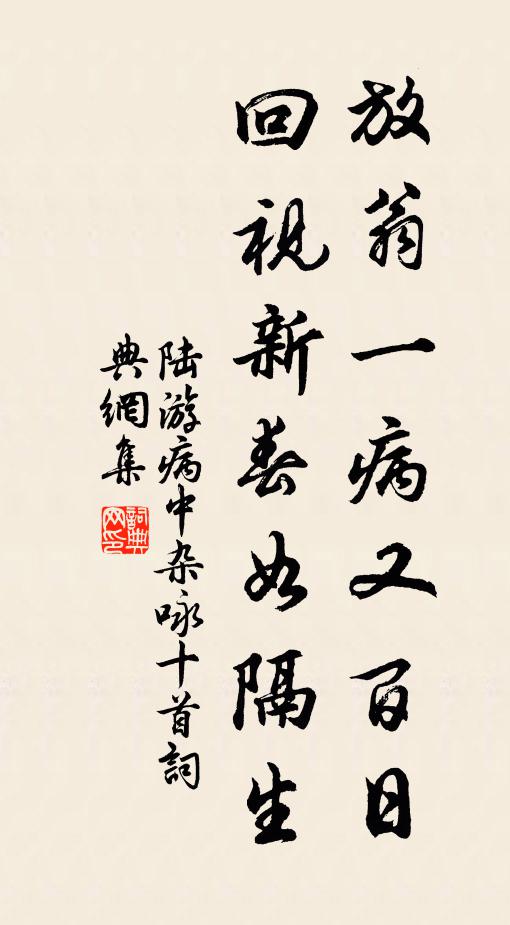 放翁一病又百日
回視新春如隔生
陆游病中杂咏十首詞
典網集
詞典
网印